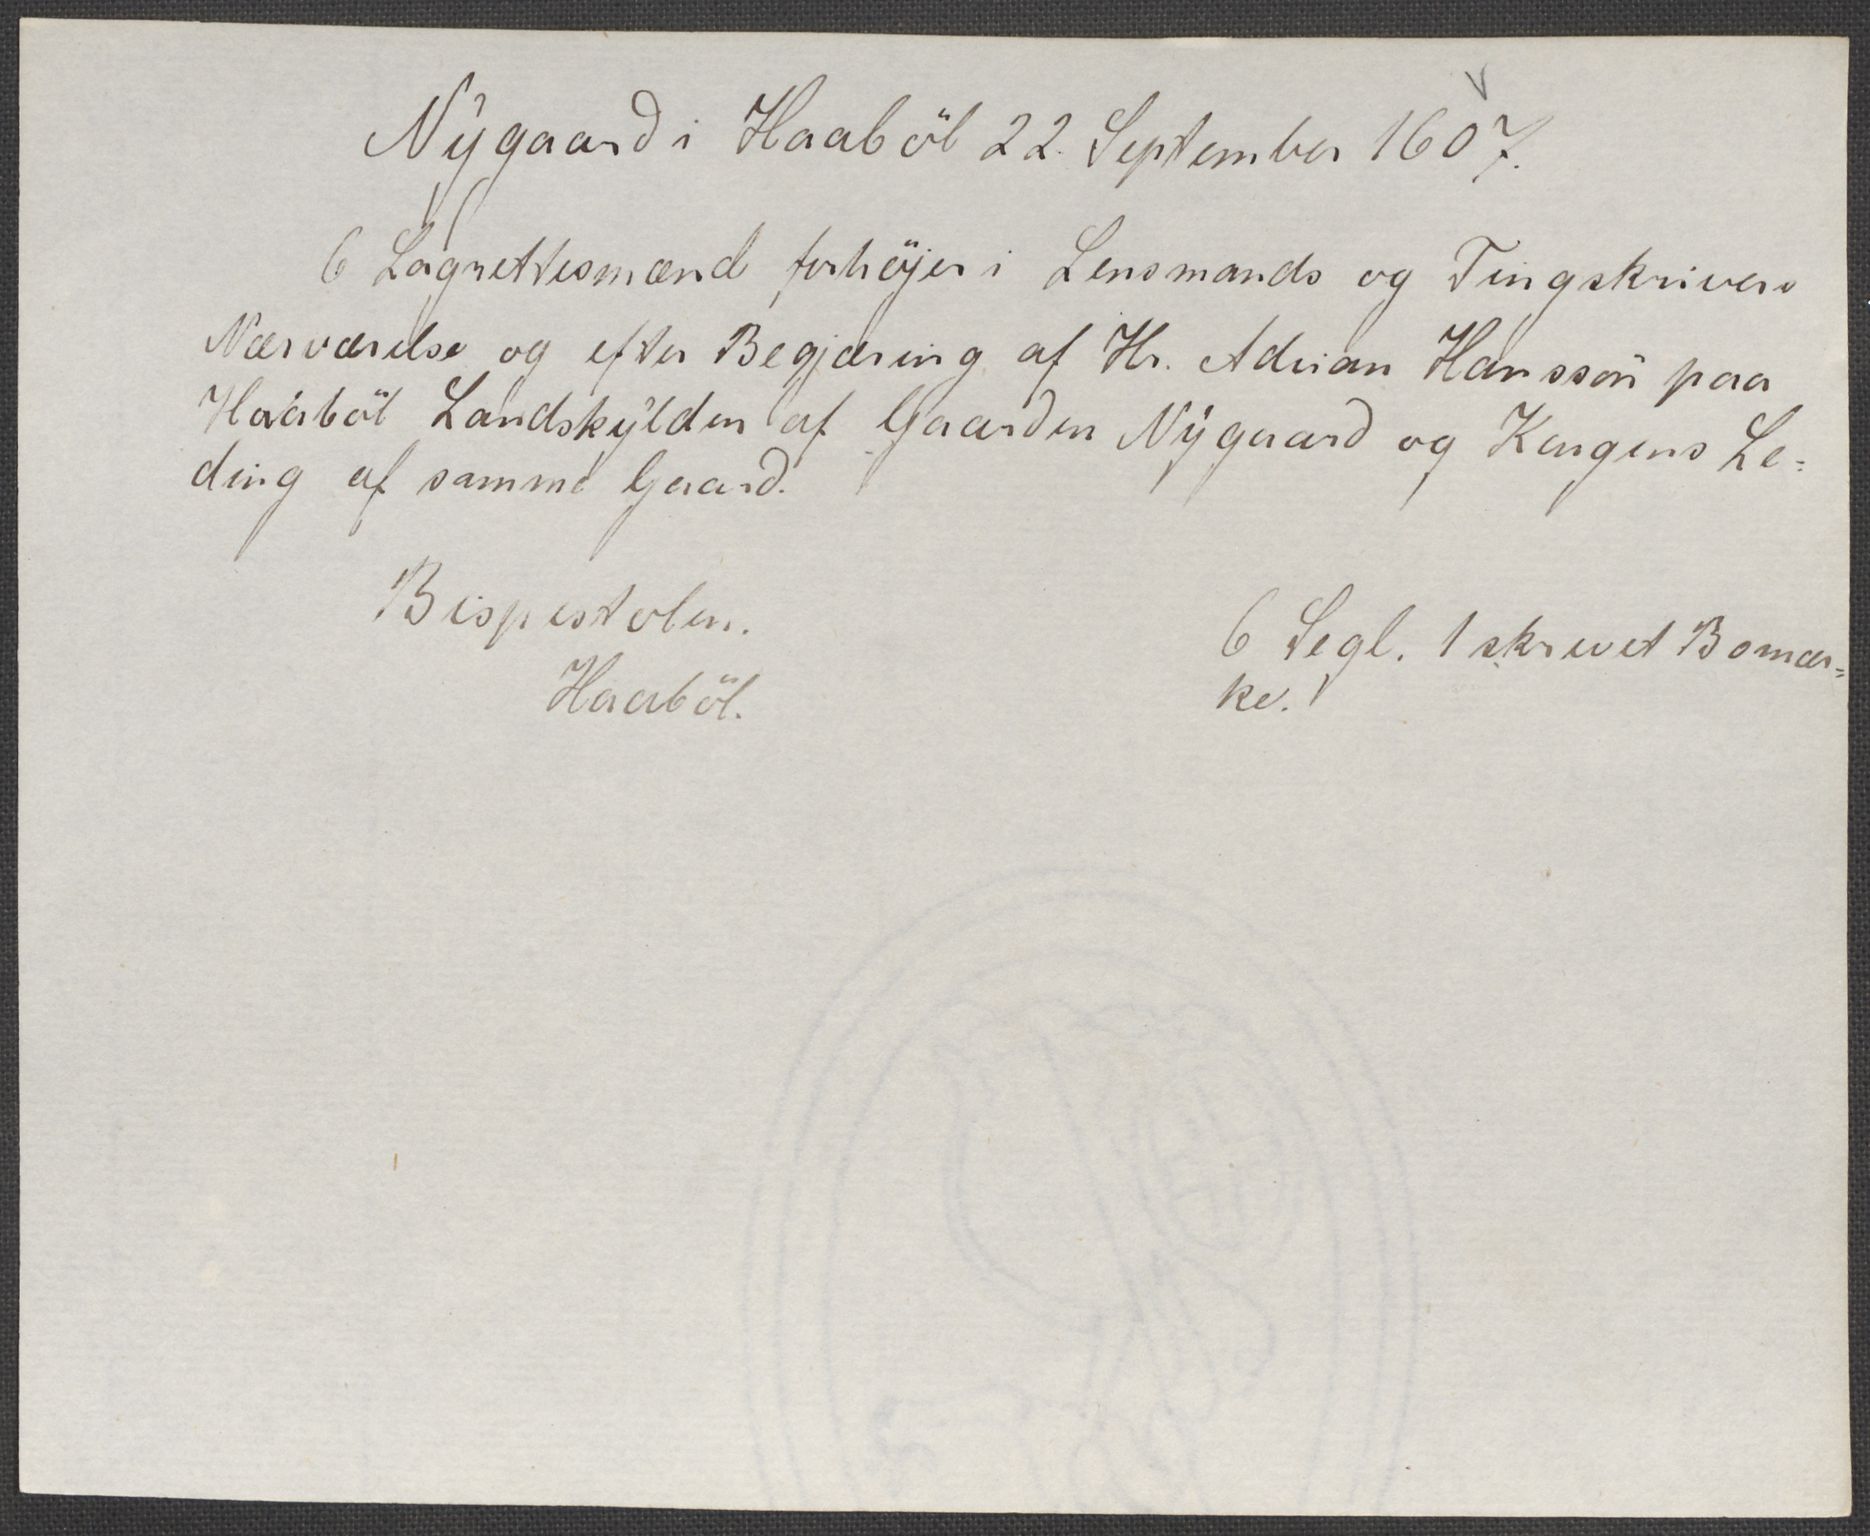 Nÿgaard i Haaböl 22. September 1607.
6 Lagrettesmænd forhöjer i Lensmands og Tingskrivers
Nærværelse og efter Begjæring af Hr. Adrian Hanssön paa
Haaböl Landskÿlden af Gaarden Nÿgaard og Kongens Le=
ding af samme Gaard.
Bispestolen.
Haaböl.
6 Segl. 1 skrevet Bomær=
ke.